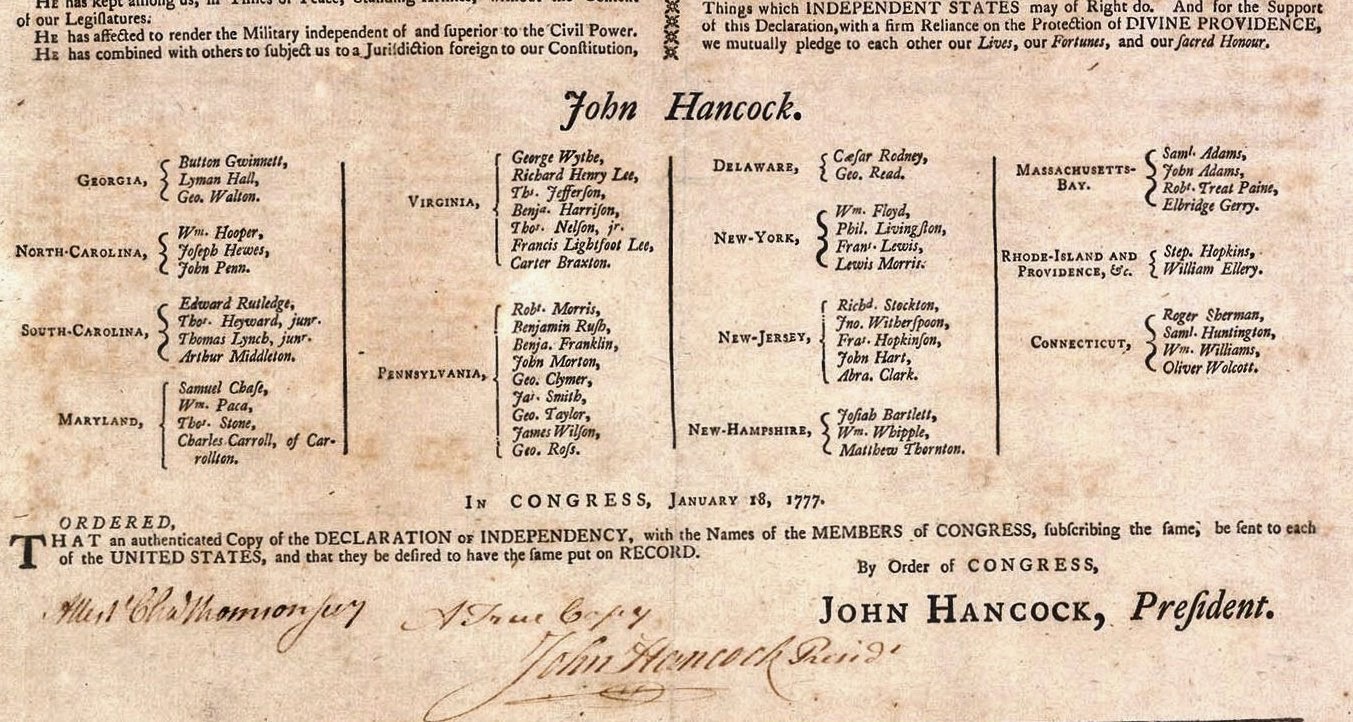 HE has kept among us, in Times of Peace, Standing Armies, without the Consent
of our Legiſlatures.
HE has affected to render the Military independent of and ſuperior to the Civil Power.
HE has combined with others to ſubject us to a Juriſdiction foreign to our Conſtitution,
Things which INDEPENDENT STATES may of Right do. And for the Support
of this Declaration, with a firm Reliance on the Protection of DIVINE PROVIDENCE,
we mutually pledge to each other our Lives, our Fortunes, and our ſacred Honour.
John Hancock.
GEORGIA,
Button Gwinnett,
Lyman Hall,
Geo. Walton.
NORTH-CAROLINA,
Wm. Hooper,
Joſeph Hewes,
John Penn.
SOUTH-CAROLINA,
Edward Rutledge,
Thos. Heyward, junr.
Thomas Lynch, junr.
Arthur Middleton.
MARYLAND,
Samuel Chaſe,
Wm. Paca,
Thos. Stone,
Charles Carroll, of Car-
rollton.
VIRGINIA,
George Wythe,
Richard Henry Lee,
Ths. Jefferſon,
Benja. Harriſon,
Thos. Nelſon, jr.
Francis Lightfoot Lee,
Carter Braxton.
PENNSYLVANIA,
Robt. Morris,
Benjamin Ruſh,
Benja. Franklin,
John Morton,
Geo. Clymer,
Jas. Smith,
Geo. Taylor,
James Wilſon,
Geo. Roſs.
DELAWARE,
Cæſar Rodney,
Geo. Read.
NEW-YORK,
Wm. Floyd,
Phil. Livingſton,
Frans. Lewis,
Lewis Morris.
NEW-JERSEY,
Richd. Stockton,
Jno. Witherſpoon,
Fras. Hopkinſon,
John Hart,
Abra. Clark.
NEW-HAMPSHIRE,
Joſiah Bartlett,
Wm. Whipple,
Matthew Thornton.
MASSACHUSETTS-
BAY.
Saml. Adams,
John Adams,
Robt. Treat Paine,
Elbridge Gerry.
RHODE-ISLAND AND
PROVIDENCE, &c.
Step. Hopkins,
William Ellery.
CONNECTICUT,
Roger Sherman,
Saml. Huntington,
Wm. Williams,
Oliver Wolcott.
IN CONGRESS, JANUARY 18, 1777.
ORDERED,
THAT an authenticated Copy of the DECLARATION OF INDEPENDENCY, with the Names of the MEMBERS of CONGRESS, ſubſcribing the ſame, be ſent to each
of the UNITED STATES, and that they be deſired to have the ſame put on RECORD.
By Order of CONGRESS,
JOHN HANCOCK, Preſident.
Attest Chas Thomson secy
A True Copy
John Hancock Presidt